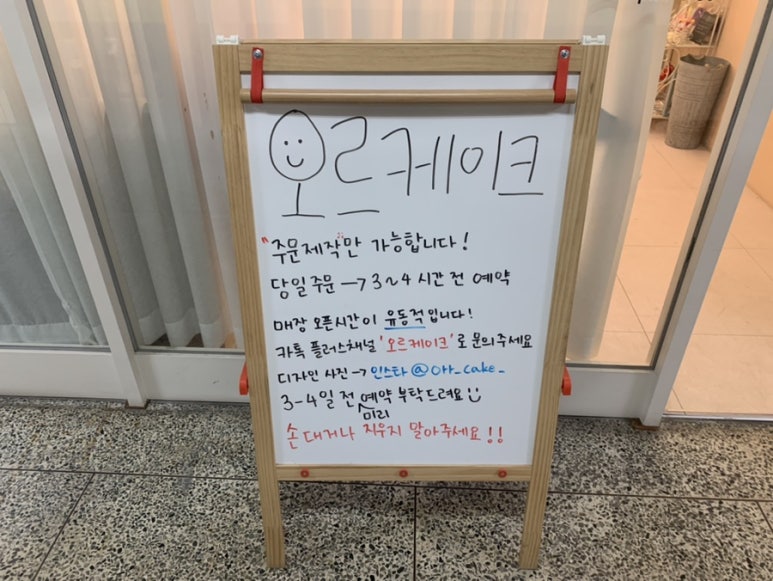 오르케이크
"주문제작"만 가능합니다!
당일주문 → 3~4시간 전 예약
매장 오픈시간이 유동적입니다!
카톡 플러스채널 '오르케이크'로 문의주세요
디자인 사진 → 인스타@orr_cake_
3-4일 전 예약 부탁드려요
미리
손 대거나 지우지 말아주세요!!